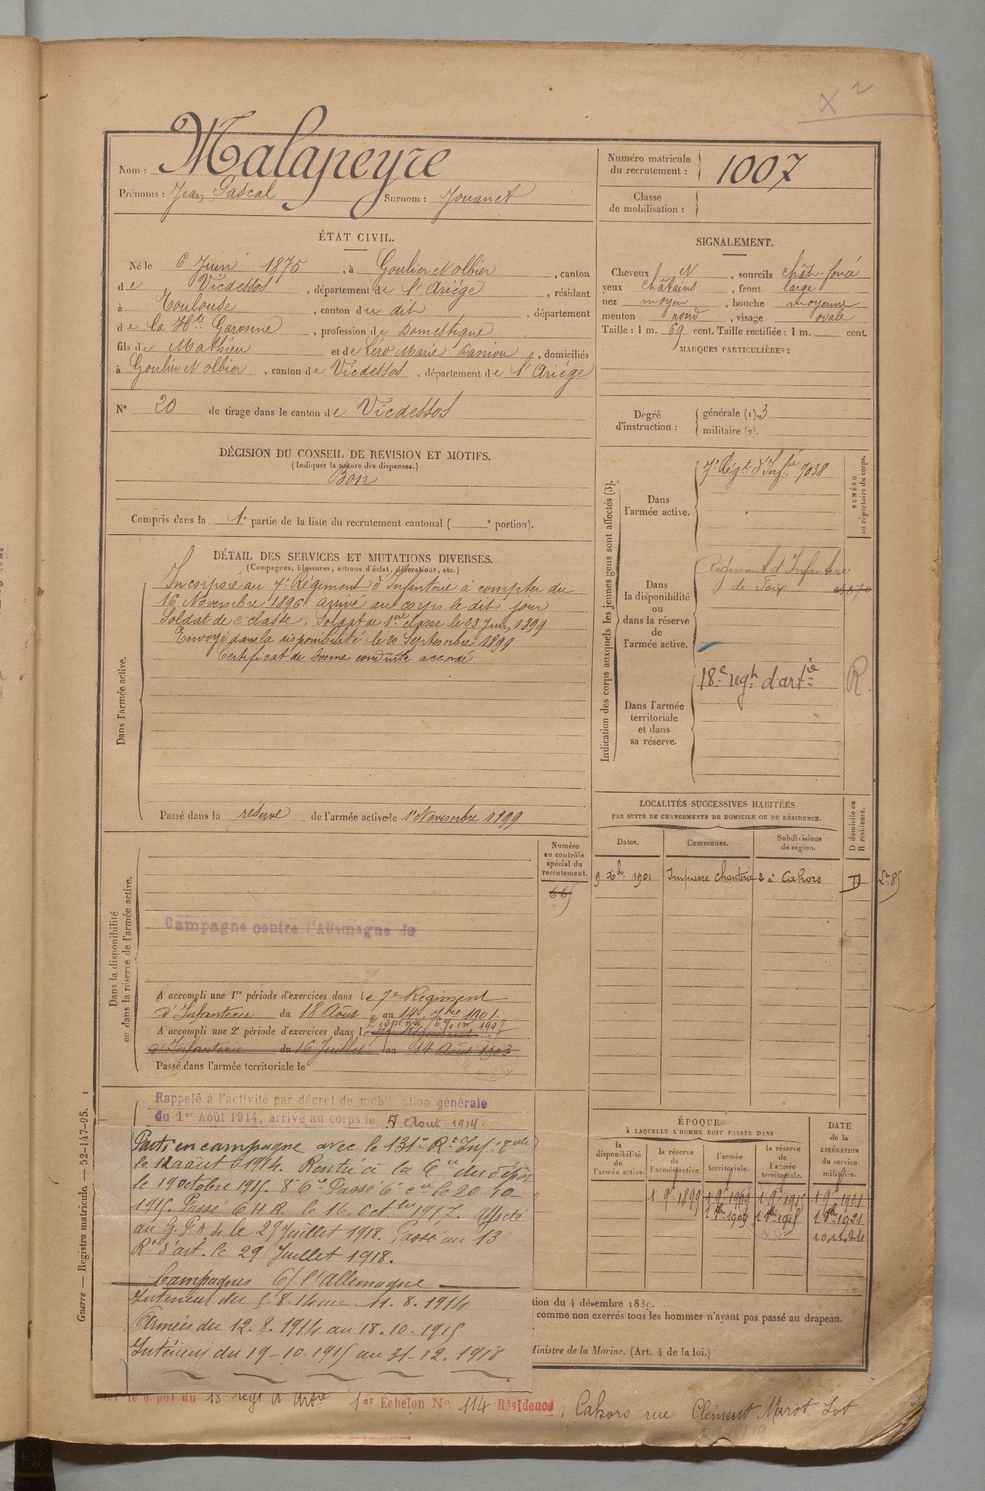 X 2
Nom : Malapeyre
Prénoms : Jean Pascal Surnom : Jouanet
Numéro matricule du recrutement : 1007
Classe de mobilisation :
ÉTAT CIVIL.
Né le 6 Juin 1875, à Goulier N olbier, canton
de Vicdessos, département de l'Ariège, résidant
à Toulouse, canton du dit, département
de la Hte Garonne, profession de Domestique
fils de Mathieu et de Marie, domiciliés
à Goulier N olbier, canton de Vicdessos, département de l'Ariège
N° 20 de tirage dans le canton de Vicdessos
SIGNALEMENT.
Cheveux N, sourcils chât-foncé
yeux châtains, front large
nez moyen, bouche moyenne
menton rond, visage ovale
Taille : 1 m. 69 cent. Taille rectifiée : 1 m. cent.
MARQUES PARTICULIÈRES :
Degré d'instruction : générale (1). 3
militaire (2).
DÉCISION DU CONSEIL DE REVISION ET MOTIFS.
(Indiquer la nature des dispenses.)
Bon
Compris dans la 1e partie de la liste du recrutement cantonal ( e portion).
DÉTAIL DES SERVICES ET MUTATIONS DIVERSES.
(Campagnes, blessures, actions d'éclat, décorations, etc.)
Dans l'armée active.
Incorporé au 7e Régiment d'Infanterie à compter du
16 Novembre 1896 arrivé au corps le dit jour
Soldat de 2e classe. Soldat de 1ère classe le 23 Juin 1899
Envoyé dans la disponibilité le 20 Septembre 1899
Certificat de bonne conduite accordé
Passé dans la réserve de l'armée active le 1er Novembre 1899
Indication des corps auxquels les jeunes gens sont affectés (3).
NUMÉRO au répertoire du corps.
Dans l'armée active.
7e Régt d'Infie 7038
Dans la disponibilité ou dans la réserve de l'armée active.
Régiment d'Infanterie
de Foix
Dans l'armée territoriale et dans sa réserve.
18e regt d'artie
R
LOCALITÉS SUCCESSIVES HABITÉES
PAR SUITE DE CHANGEMENTS DE DOMICILE OU DE RÉSIDENCE.
Dates. Communes. Subdivisions de région. D domicile ou R résidence.
9 Xbre 1901 Impasse chanterie 2 à Cahors D
Dans la disponibilité ou dans la réserve de l'armée active.
Numéro au contrôle spécial du recrutement.
Campagne contre l'Allemagne du
A accompli une 1re période d'exercices dans le 7e Régiment
d'Infanterie du 18 Août au 14 7bre 1901.
A accompli une 2e période d'exercices dans le
d'Infanterie du 16 Juillet au 14 Août 1903
Passé dans l'armée territoriale le
Rappelé à l'activité par décret de mobilisation générale
du 1er Août 1914, arrivé au corps le 5 Aout 1914.
Parti en campagne avec le 131e Rt Inf.
le 12 août 1914. Rentré à la Cie du dépôt
le 19 octobre 1915. 8e Cie Passé 6e Cie le 20-10-
1915. Passé C H R. le 16 Octbre 1917. Affecté
au G.P.A. le 29 Juillet 1918. Passé au 13
Rt d'art. le 29 Juillet 1918.
Campagnes C/ l'Allemagne
Intérieur du 5-8-14 au 11.8.1914
Armées du 12.8.1914 au 18.10-1915
Intérieur du 19-10-1915 au 31-12.1918
ÉPOQUE
À LAQUELLE L'HOMME DOIT PASSER DANS
la disponibilité de l'armée active. la réserve de l'armée active. l'armée territoriale. la réserve de l'armée territoriale.
DATE de la LIBÉRATION du service militaire.
1 9e 1899 1 9e 1909 1 9e 1915 1 9e 1921
1 8re 1909 1 8re 1915 1 8re 1921
tion du 4 décembre 1889.
comme non exercés tous les hommes n'ayant pas passé au drapeau.
Ministre de la Marine. (Art. 4 de la loi.)
le dépôt du 18 regt d'artie 1er Echelon N° 114 Résidence : Cahors rue Clément Marot Lot
Guerre — Registre matricule — 52-147-95.